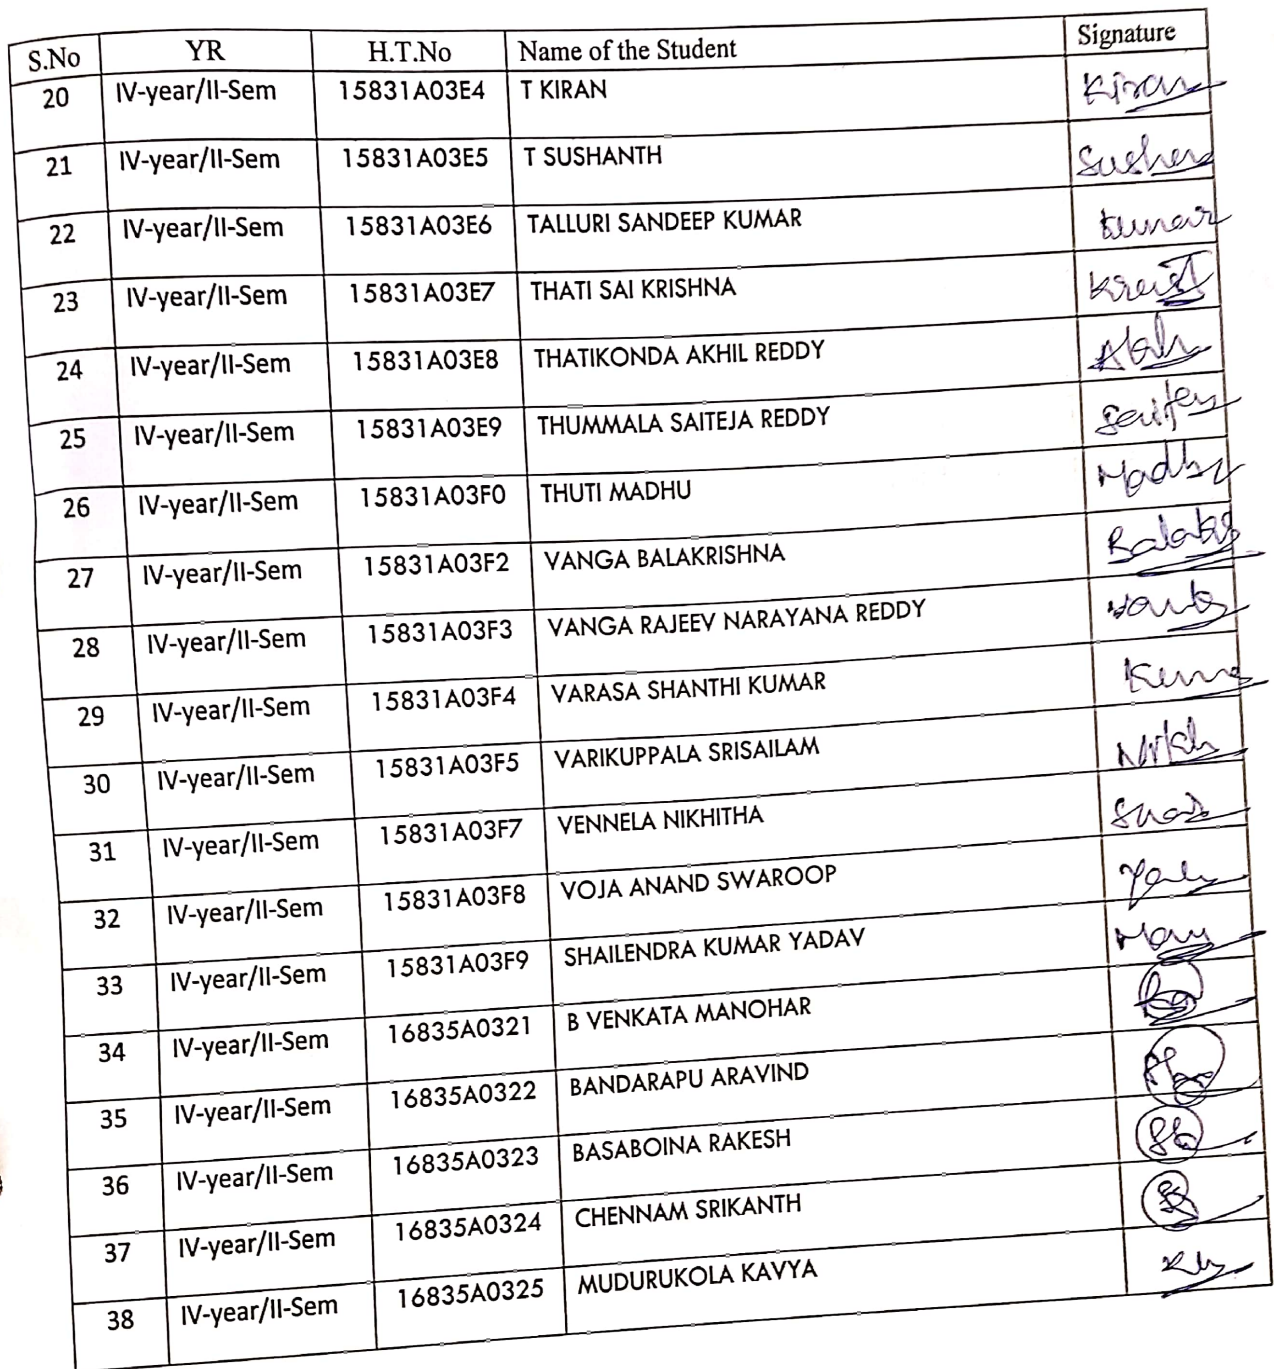 S.No YR H.T.No Name of the Student Signature
20 IV-year/II-Sem 15831A03E4 T KIRAN Kiran
21 IV-year/II-Sem 15831A03E5 T SUSHANTH
22 IV-year/II-Sem 15831A03E6 TALLURI SANDEEP KUMAR Kumar
23 IV-year/II-Sem 15831A03E7 THATI SAI KRISHNA
24 IV-year/II-Sem 15831A03E8 THATIKONDA AKHIL REDDY
25 IV-year/II-Sem 15831A03E9 THUMMALA SAITEJA REDDY
26 IV-year/II-Sem 15831A03F0 THUTI MADHU Madhu
27 IV-year/II-Sem 15831A03F2 VANGA BALAKRISHNA
28 IV-year/II-Sem 15831A03F3 VANGA RAJEEV NARAYANA REDDY
29 IV-year/II-Sem 15831A03F4 VARASA SHANTHI KUMAR
30 IV-year/II-Sem 15831A03F5 VARIKUPPALA SRISAILAM
31 IV-year/II-Sem 15831A03F7 VENNELA NIKHITHA
32 IV-year/II-Sem 15831A03F8 VOJA ANAND SWAROOP
33 IV-year/II-Sem 15831A03F9 SHAILENDRA KUMAR YADAV
34 IV-year/II-Sem 16835A0321 B VENKATA MANOHAR
35 IV-year/II-Sem 16835A0322 BANDARAPU ARAVIND
36 IV-year/II-Sem 16835A0323 BASABOINA RAKESH
37 IV-year/II-Sem 16835A0324 CHENNAM SRIKANTH
38 IV-year/II-Sem 16835A0325 MUDURUKOLA KAVYA